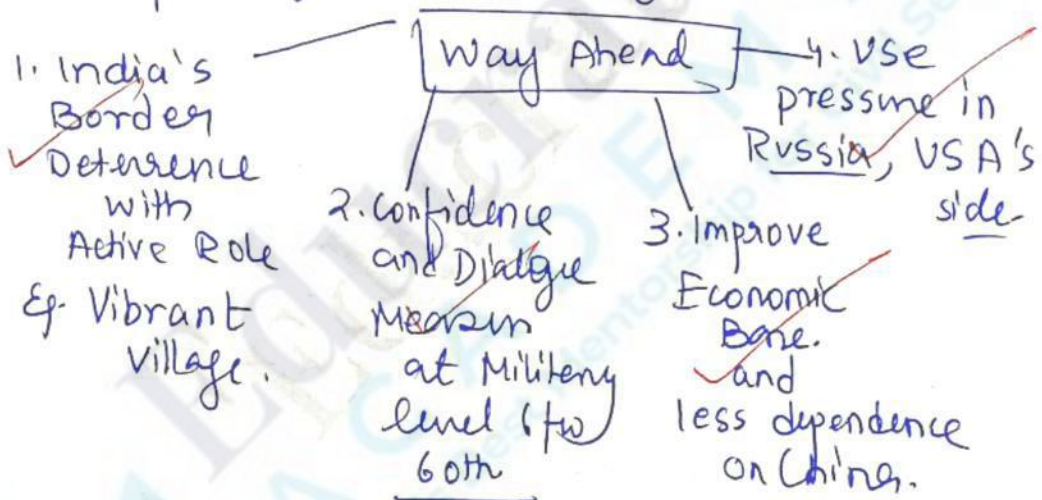 Way Ahead
1. India's
Border
Deterrence
with
Active Role
Eg. Vibrant
Village.
2. Confidence
and Dialogue
Measures
at Military
level b/w
both
3. Improve
Economic
Base.
and
less dependence
on China.
4. Use
pressure in
Russia, USA's
side.